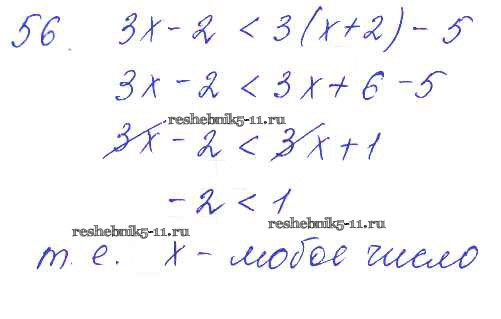 56. 3x - 2 < 3(x+2) - 5
3x - 2 < 3x + 6 - 5
reshebnik5-11.ru
3x - 2 < 3x + 1
-2 < 1
reshebnik5-11.ru reshebnik5-11.ru
т. е. x - любое число